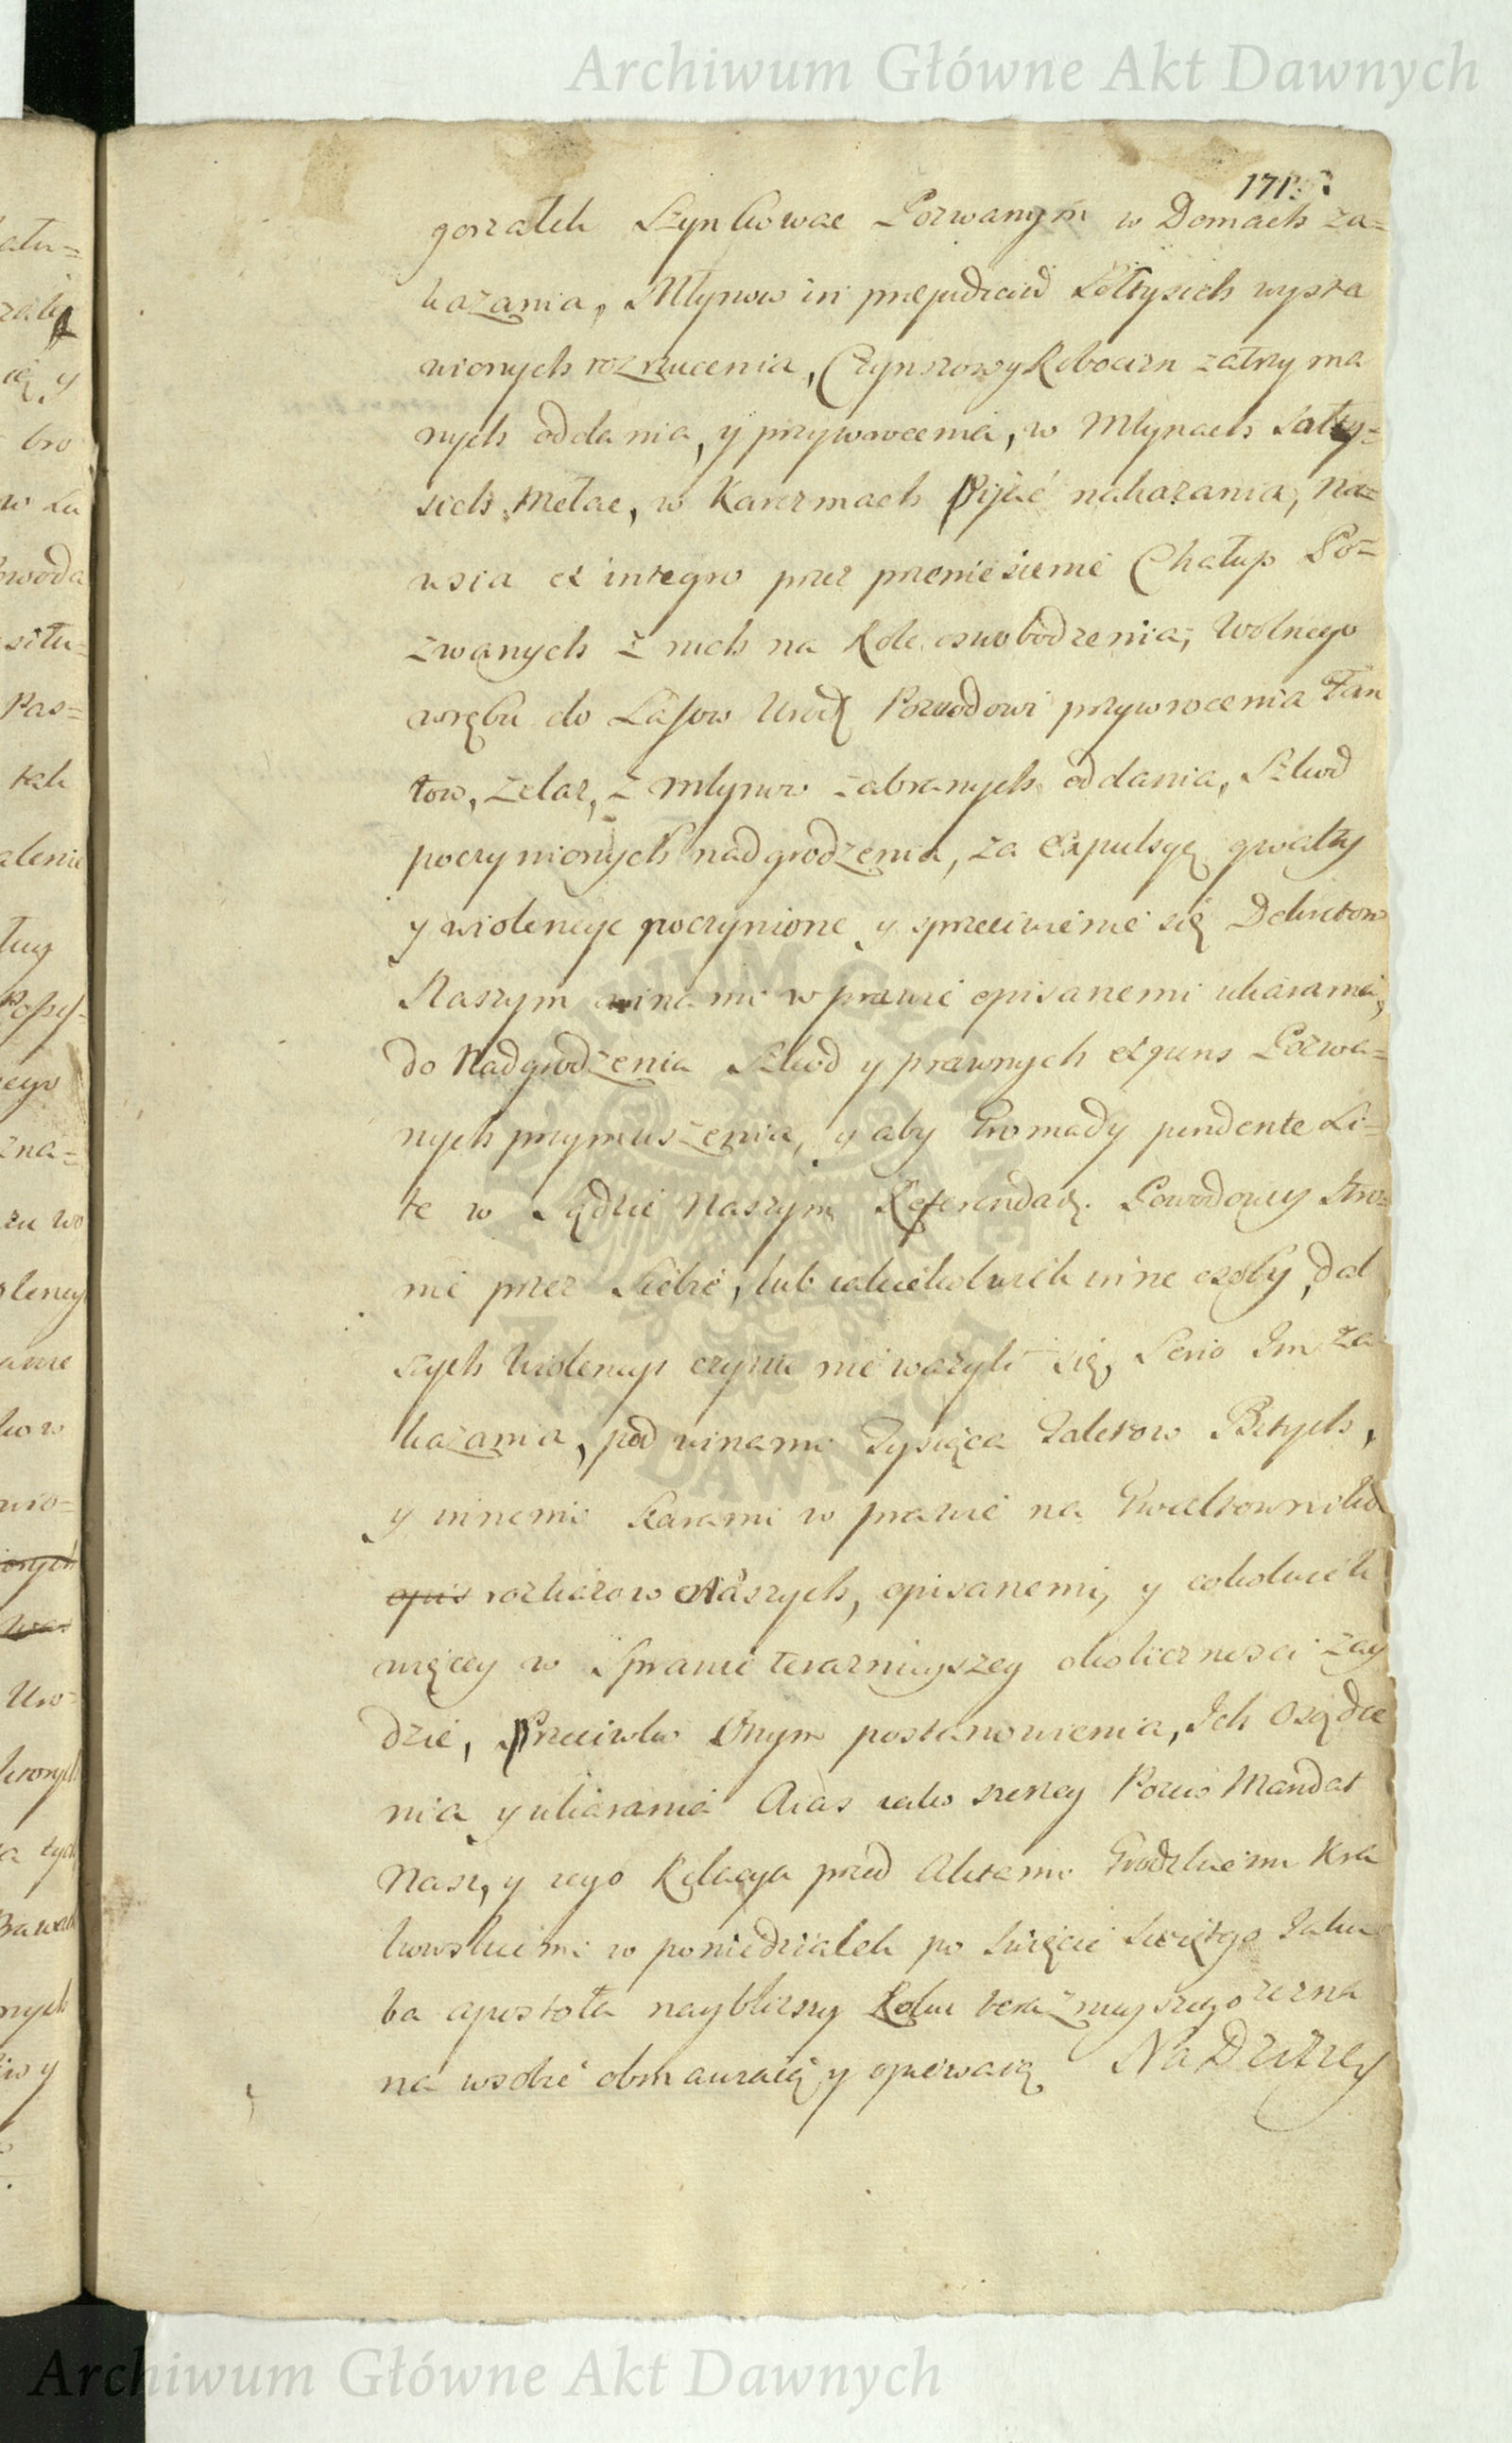 Archiwum Główne Akt Dawnych
gorzałek Szynkowac Pozwanym w Domach za=
kazania, Młynow in prejudicium Sołtysich wysta
wionych rozrzucenia, Czynszow y Robocizn zatrzyma
nych oddania, y przywrocenia, w Młynach Sołty=
sich Mełac, w Karczmach Pijać nakazania, Na=
wsia ex integro przez przeniesienie Chałup Po=
zwanych z nich na Role oswobodzenia, Wolnego
wrębu do Lasow Urodz Powodowi przywrocenia Fan
tow, Zelaz, z Młynow zabranych oddania, Szkod
poczynionych nadgrodzenia, za Expulsyę gwałty
y wiolencye poczynione y sprzeciwienie się Dekretom
Naszym winami w prawie opisanemi ukarania,
do Nadgrodzenia Szkod y prawnych expens Pozwa=
nych przymuszenia, y aby Gromady pendente Li=
te w Sądzie Naszym Referendar. Powodowey Stro=
nie przez Siebie, lub iakiekolwiek inne osoby, dal
szych Wiolencyi czynic nie wazyli się, Serio Im za
kazania, pod winami Tysiąca Talerow Bitych,
y innemi Karami w prawie na Gwałtownikow
opis rozkazow Naszych, opisanemi, y cokolwiek
więcey w Sprawie teraznieyszey okolicznosci zay
dzie, Przeciwko Onym postanowienia, Ich Osądze
nia y ukarania Azas iako szerzey Pozew Mandat
Nasz, y iego Relacya przed Aktami Grodzkiemi Kra
kowskiemi w poniedziałek po Swięcie Swiętego Jaku
ba apostoła nayblizszy Roku teraznieyszego zezna
na w sobie obmawiaią y opiewaią Na Drzey
Archiwum Główne Akt Dawnych